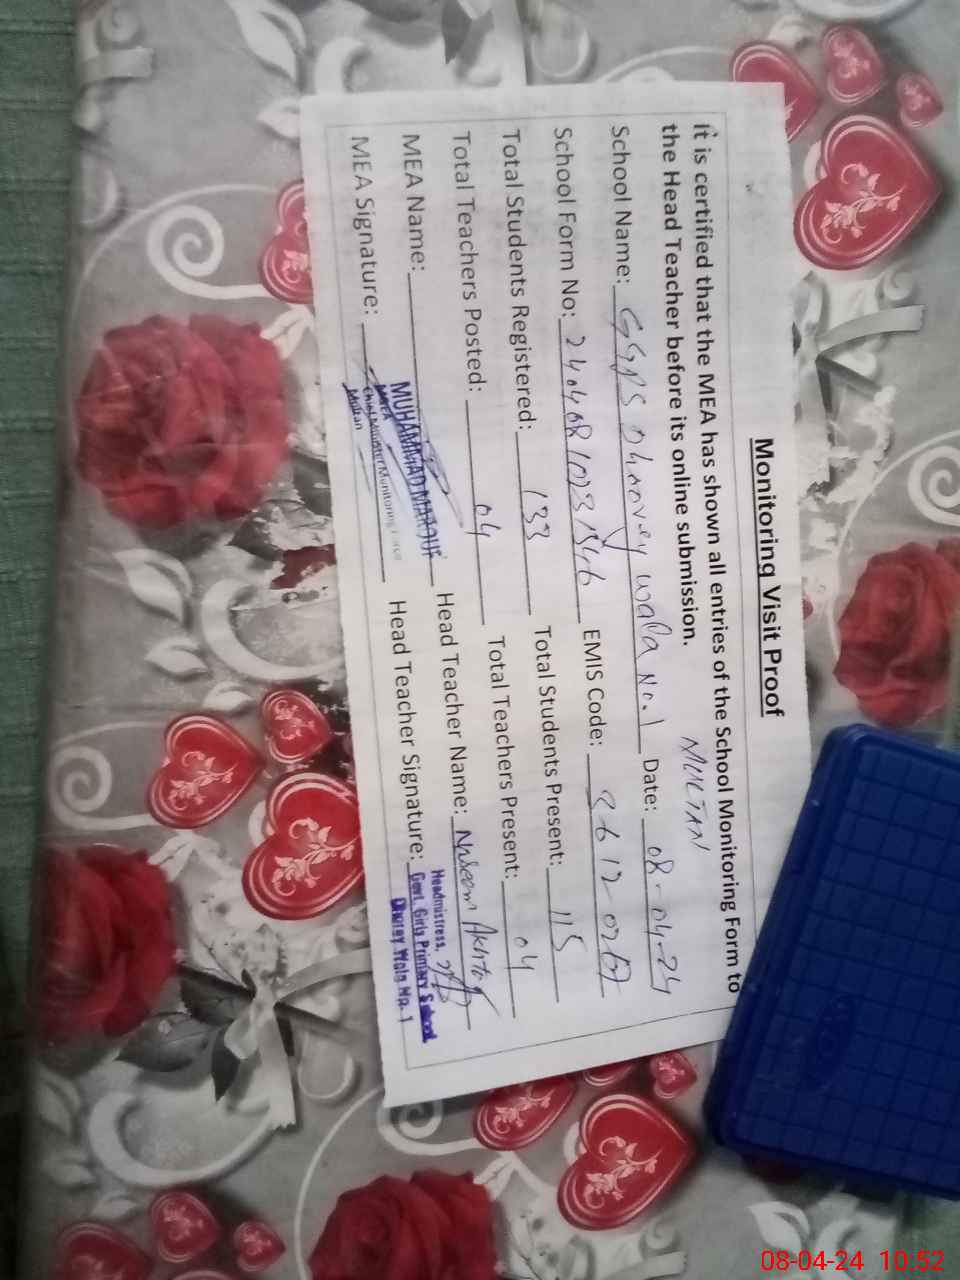 Monitoring Visit Proof
It is certified that the MEA has shown all entries of the School Monitoring Form to
the Head Teacher before its online submission.
MULTAN
School Name: GGPS Dhoorey wala No.1 Date: 08-04-24
School Form No: EMIS Code:
Total Students Registered: 133 Total Students Present: 115
Total Teachers Posted: 04 Total Teachers Present: 04
MEA Name: MUHAMMAD MAROUF Head Teacher Name: Naseem Akhtar
MEA
Chief Minister Monitoring Force
Multan
MEA Signature: Head Teacher Signature:
Headmistress,
Govt. Girls Primary School
Wala No. 1
08-04-24 10:52